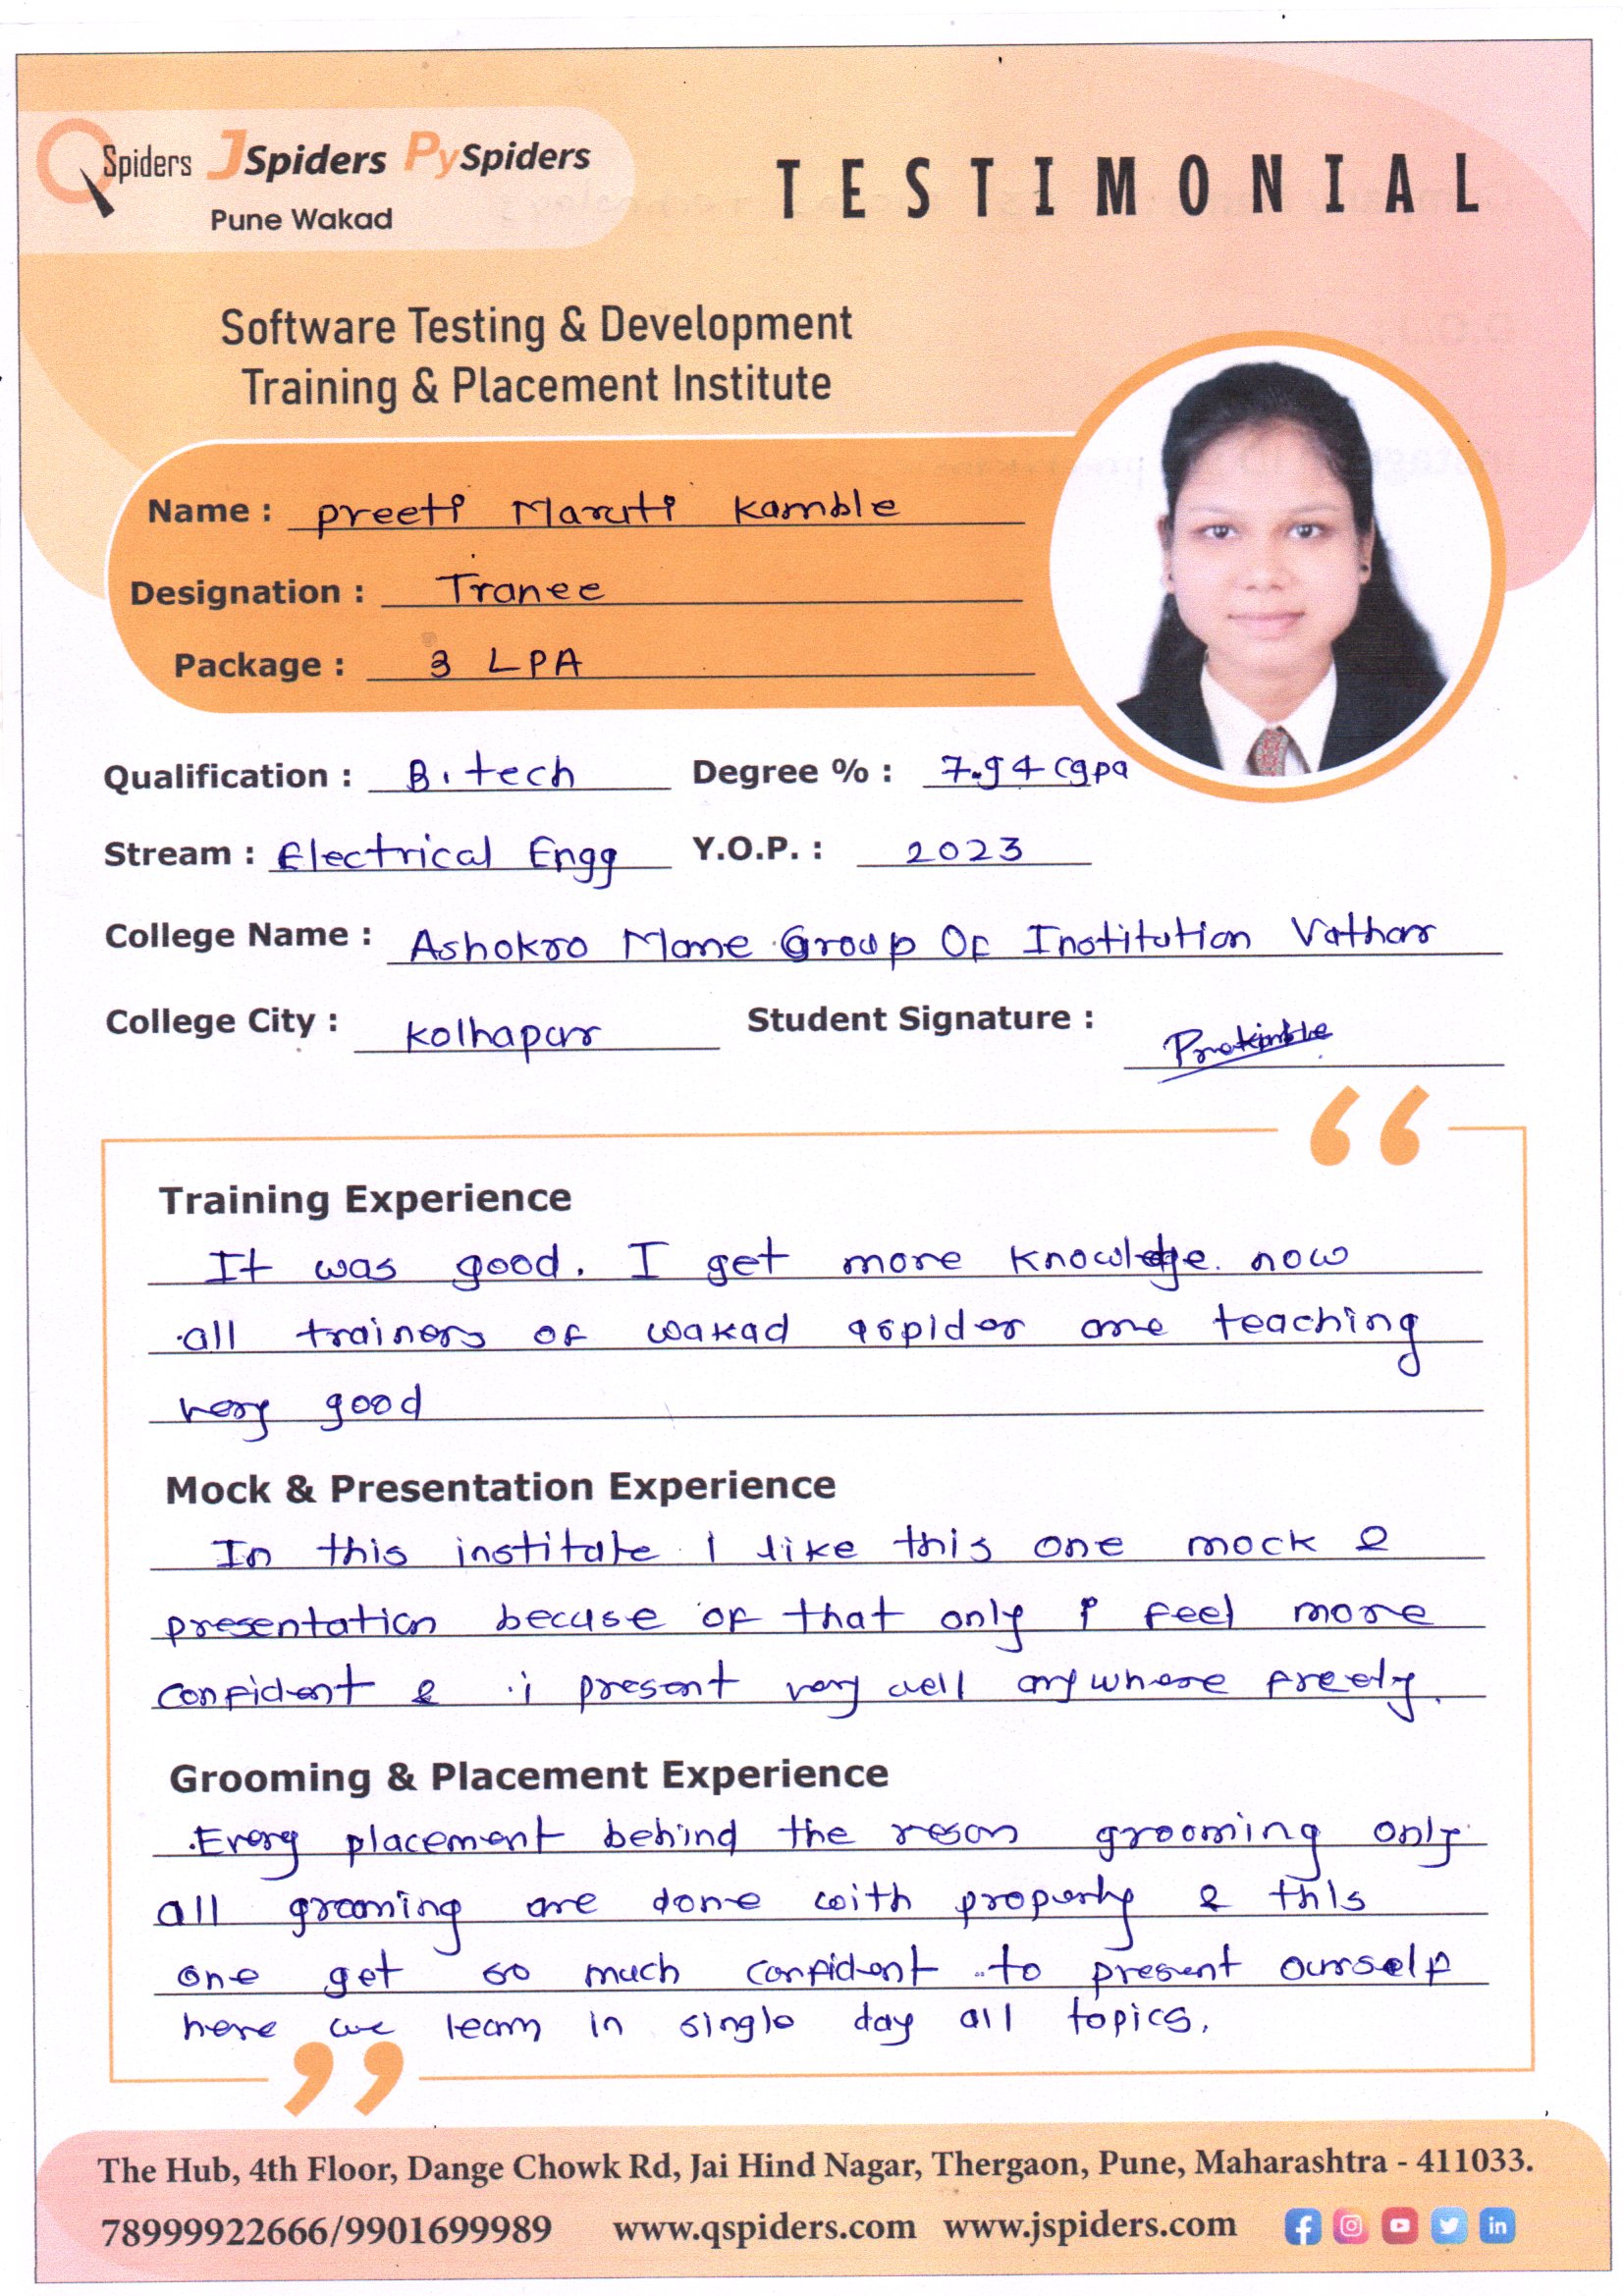 QSpiders JSpiders PySpiders
Pune Wakad
TESTIMONIAL
Software Testing & Development
Training & Placement Institute
Name : preeti Maruti Kamble
Designation : Tranee
Package : 3 LPA
Qualification : B.tech Degree % : 7.94 cgpa
Stream : Electrical Engg Y.O.P. : 2023
College Name : Ashokro Mane Group Of Institution Vathar
College City : Kolhapur Student Signature :
Training Experience
It was good. I get more knowledge. now
all trainers of wakad qspider are teaching
very good
Mock & Presentation Experience
In this institute I like this one mock &
presentation becuse of that only I feel more
confident & i present very well anywhere freely.
Grooming & Placement Experience
Every placement behind the reson grooming only
all grooming are done with property & this
one get so much confident to present ourself
here we learn in single day all topics.
The Hub, 4th Floor, Dange Chowk Rd, Jai Hind Nagar, Thergaon, Pune, Maharashtra - 411033.
78999922666/9901699989 www.qspiders.com www.jspiders.com